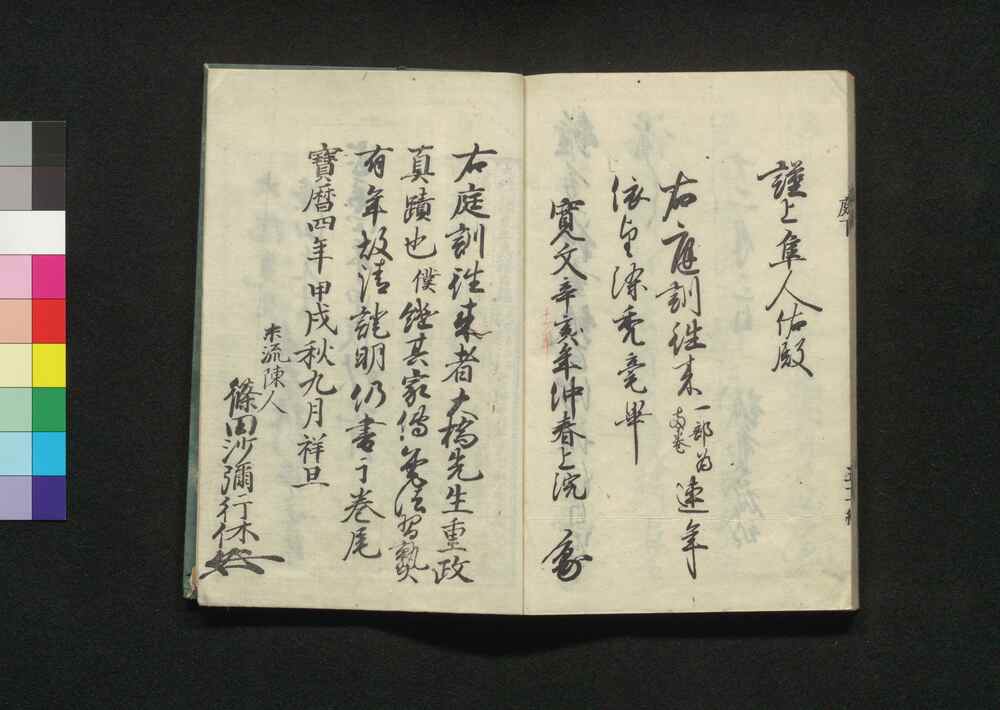 謹上 隼人佑殿
右庭訓往来一部為両巻連年
依望染禿毫畢
寛文辛亥年仲春上浣
右庭訓往来者大橋先生重政
真蹟也僕繼其家傳筆法習熟
有年故請證明仍書于巻尾
寶暦四年甲戌秋九月祥旦
末流陳人
篠田沙彌行休